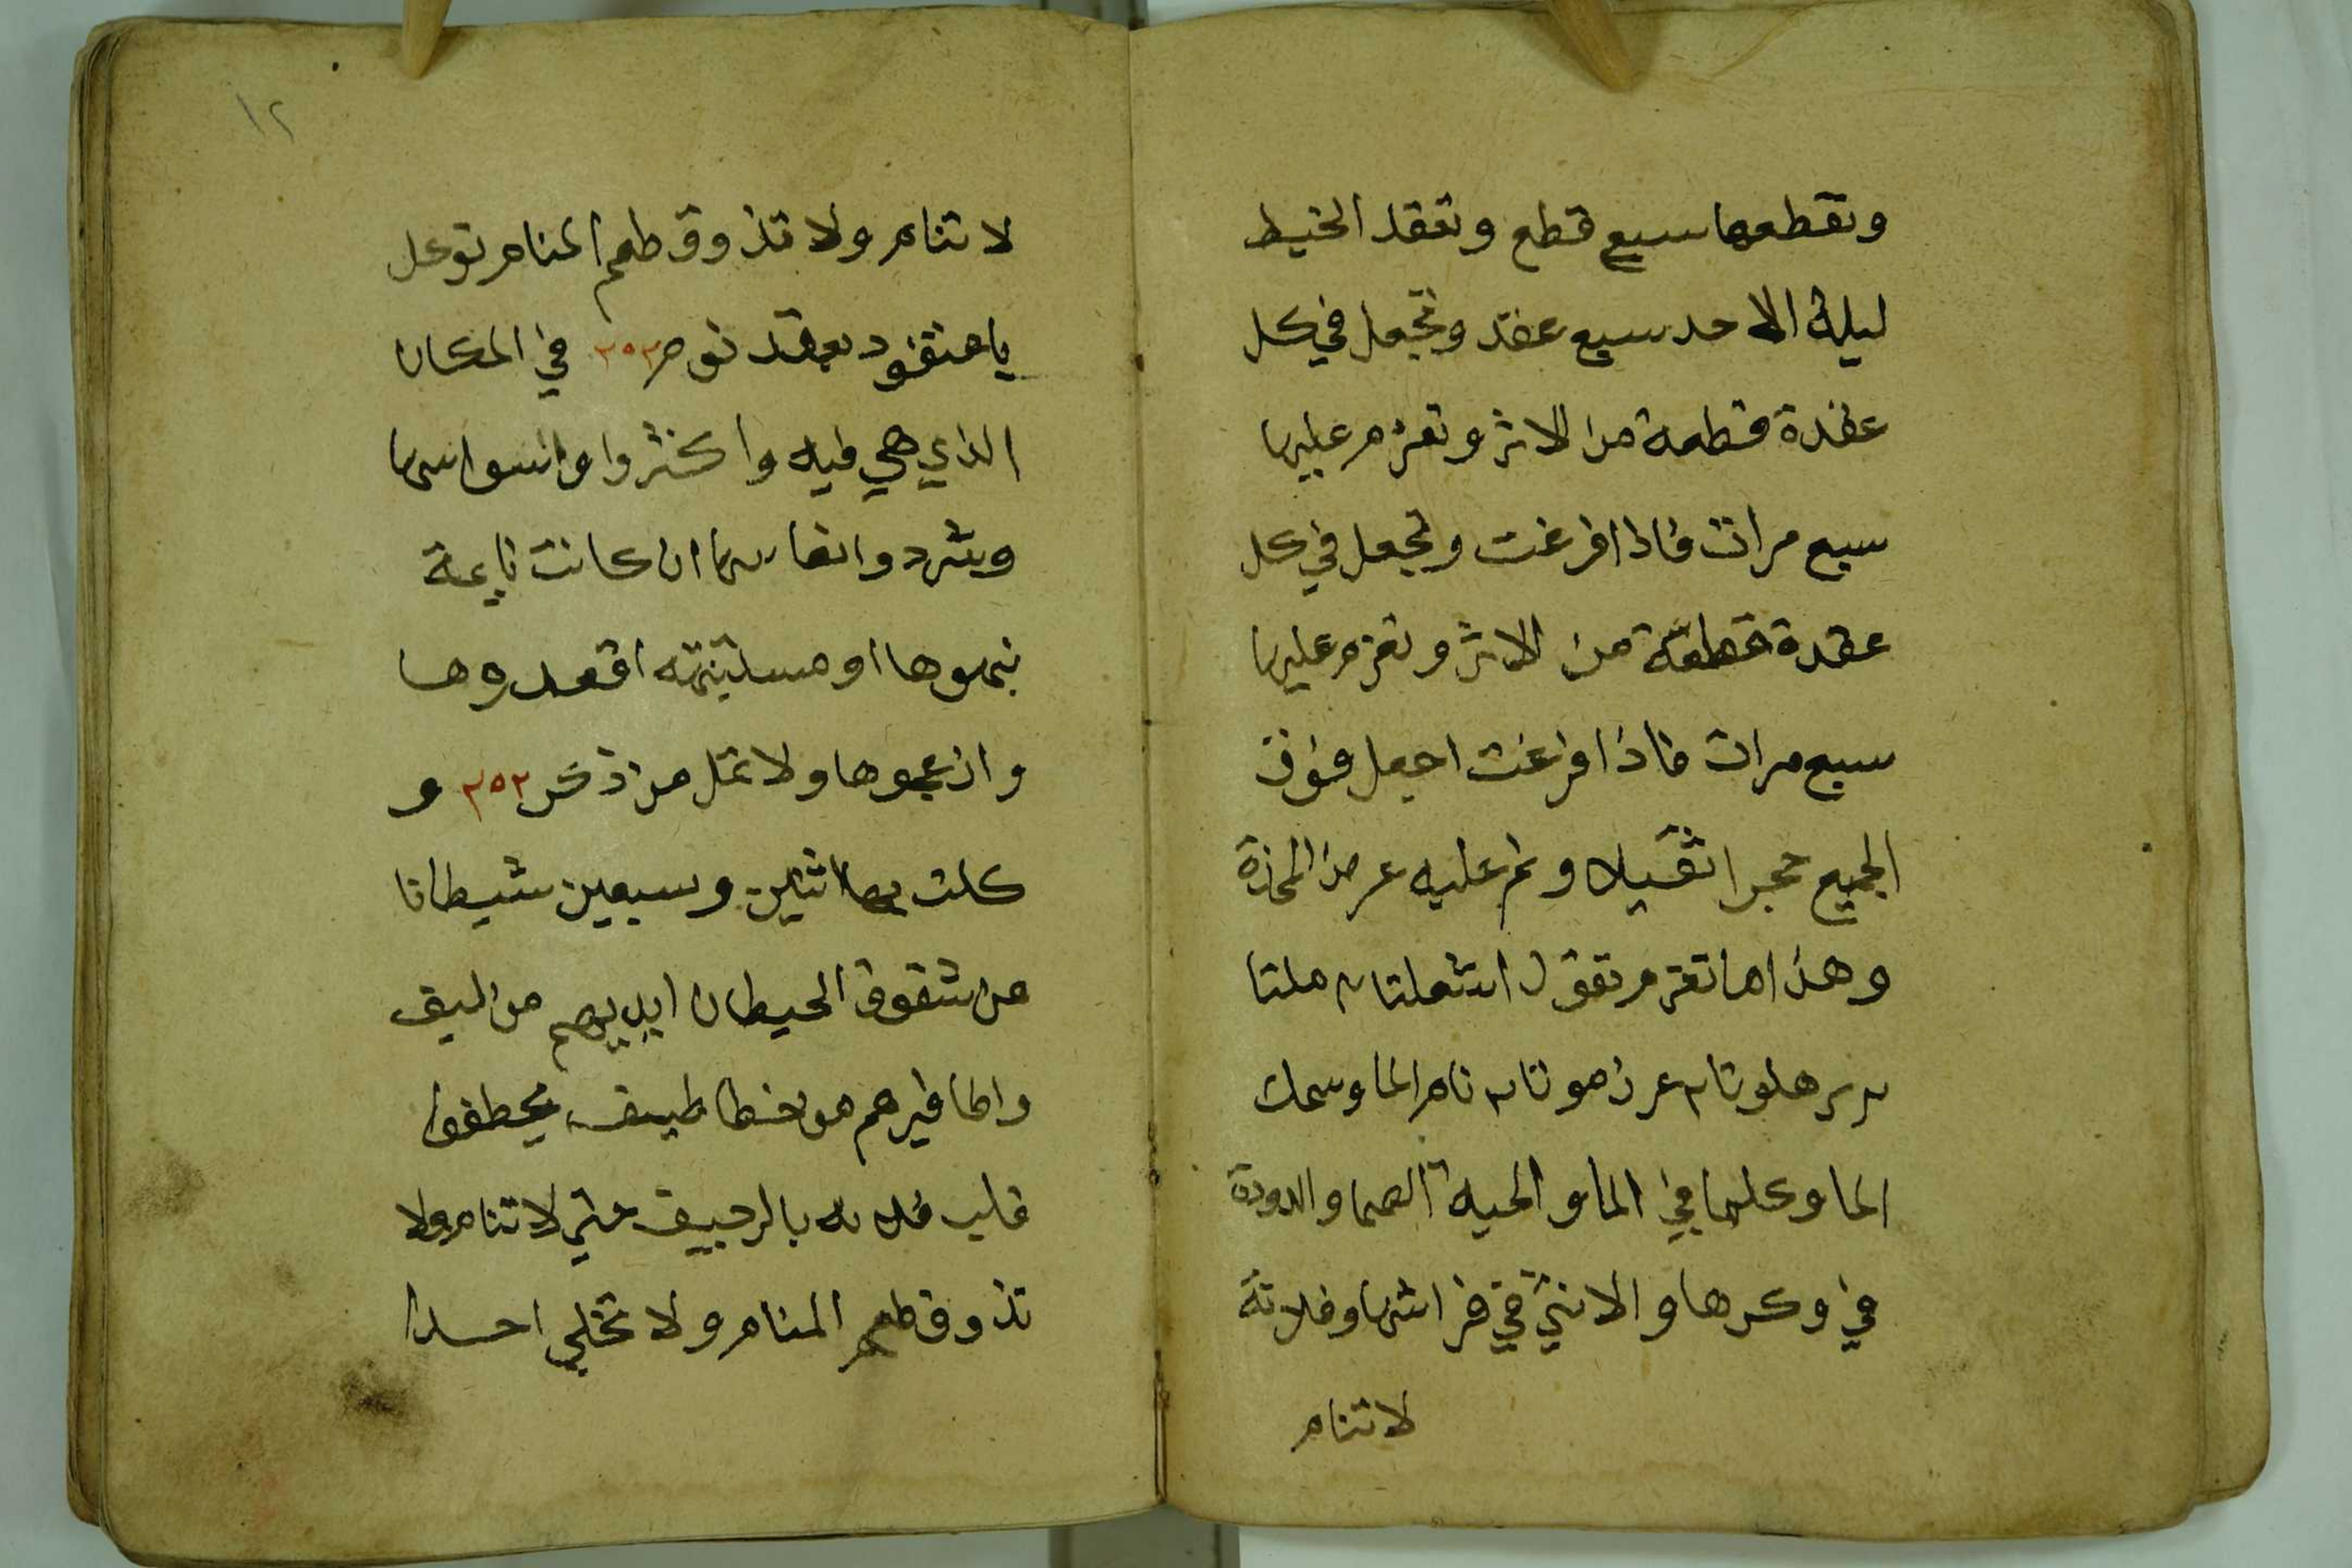 وتقطعها سبع قطع وتعقد الخيط
ليلة الاحد سبع عقد وتجعل في كل
عقدة قطعة من الاثر وتعزم عليها
سبع مرات فاذا فرغت وتجعل في كل
عقدة قطعة من الاثر وتعزم عليها
سبع مرات فاذا فرغت اجعل فوق
الجميع حجرا ثقيلا ونم عليه عوض المخدة
وهذا ما تعزم تقول
نام الما وسمك
الما وكلما في الما والحية الصما والدودة
في وكرها والانثي في فراشها وفلانة
لا تنام
١٢
لا تنام ولا تذوق طعم المنام توكل
يا عنقود بعقد نوم ٢٥٢ في المكان
الذي هي فيه واكثروا وانسوا سها
وشردوا نعاسها ان كانت نايمة
نبهوها او مستيقظه اقعدوها
وازعجوها ولا تمل من ذكر ٢٥٢ و
كلت بها اثنين وسبعين شيطانا
من شقوق الحيطان ايديهم من الليف
واظافيرهم من خطاطيف يخطفوا
قلب فلانه بالرجيف حتي لا تنام ولا
تذوق طعم المنام ولا تخلي احدا